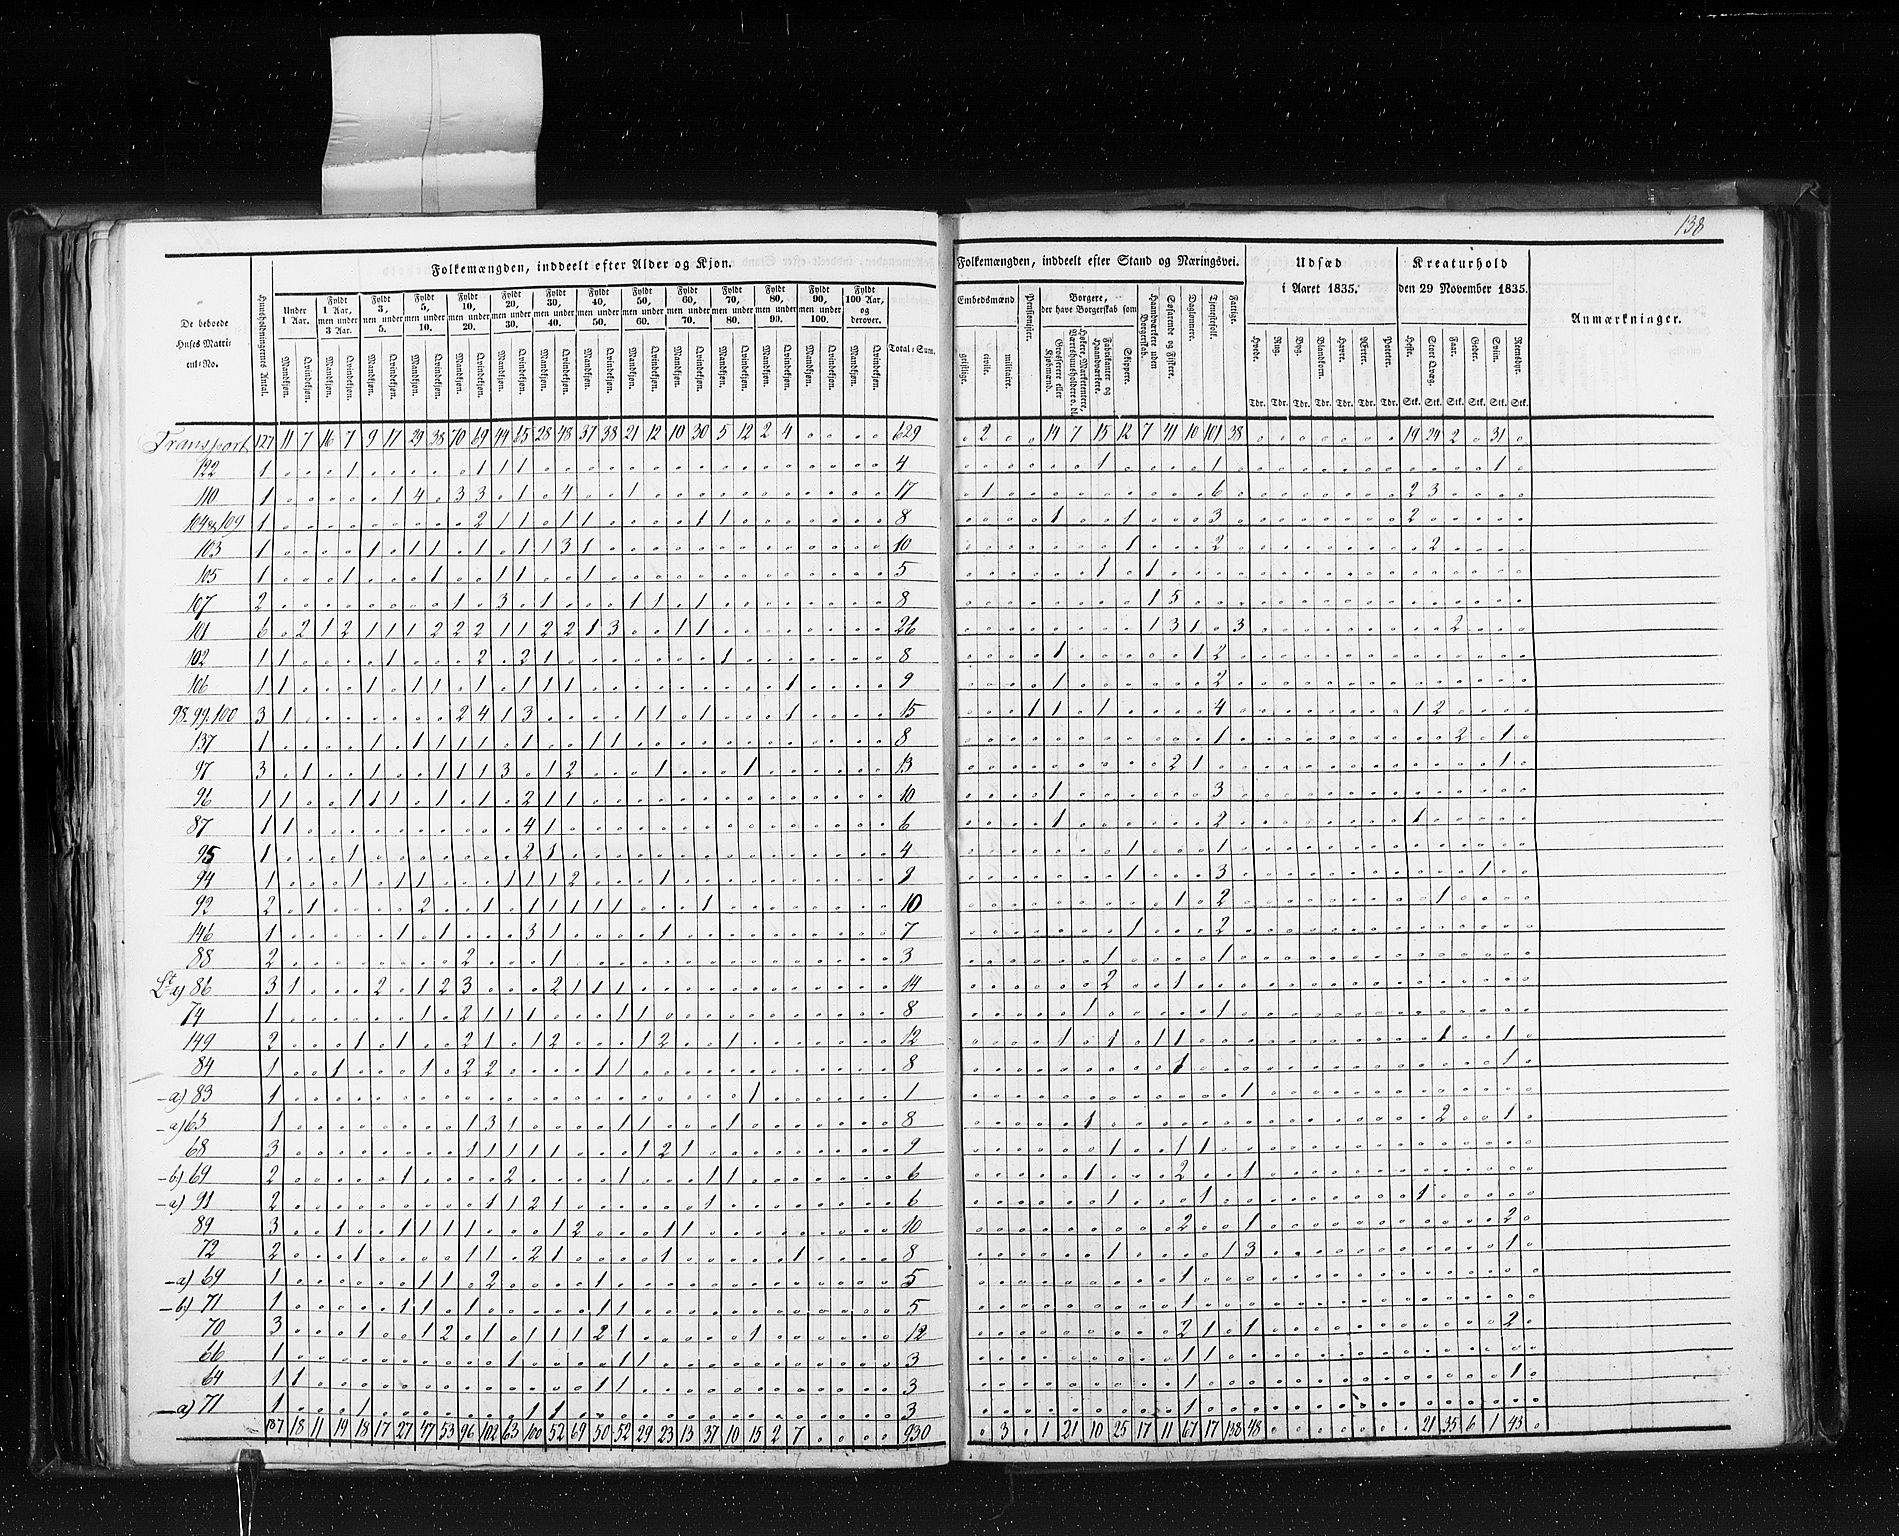 138
Folkemængden, inddeelt efter Alder og Kjøn.
Folkemængden, inddeelt efter Stand og Næringsvei.
Udsæd i Aaret 1835.
Kreaturhold den 29 November 1835.
Anmærkninger.
De beboede Huses Matricul-No.
Huusholdningernes Antal.
Under 1 Aar.
Fyldt 1 Aar, men under 3 Aar.
Fyldt 3, men under 5.
Fyldt 5, men under 10.
Fyldt 10, men under 20.
Fyldt 20, men under 30.
Fyldt 30, men under 40.
Fyldt 40, men under 50.
Fyldt 50, men under 60.
Fyldt 60, men under 70.
Fyldt 70, men under 80.
Fyldt 80, men under 90.
Fyldt 90, men under 100.
Fyldt 100 Aar, og derover.
Mandkjøn. Qvindekjøn.
Total-Sum.
Embedsmænd
geistlige. civile. militaire.
Pensionister.
Borgere, der have Borgerskab som
Grosserere eller Kjøbmænd.
Fabrikanter og Haandværkere.
Skippere.
Haandværkere uden Borgerskab.
Søfarende og Fiskere.
Daglønnere.
Tjenestefolk.
Fattige.
Hvede. Rug. Byg. Blandkorn. Havre. Ærter. Poteter.
Tdr. Tdr. Tdr. Tdr. Tdr. Tdr. Tdr.
Heste. Stort Qvæg. Faar. Geder. Sviin. Rensdyr.
Stk. Stk. Stk. Stk. Stk. Stk.
Transport 127 11 7 16 7 9 17 29 38 70 69 44 65 28 48 37 38 21 12 10 30 5 12 2 4 629 2 14 7 15 12 7 41 10 101 38 19 24 2 31
122 1 1 1 1 1 4 1 1 1
110 1 1 4 3 3 1 4 1 17 1 6 2 3
104 & 109 1 2 1 1 1 1 1 1 8 1 1 3 2
103 1 1 1 1 1 1 1 3 1 10 1 2 2
105 1 1 1 1 1 1 5 1 1
107 2 1 3 1 1 1 1 8 1 5
101 6 2 1 2 1 1 1 2 2 2 1 1 2 2 1 3 1 1 26 1 3 1 3 2
102 1 1 1 2 2 1 1 8 1 1 2
106 1 1 1 1 1 1 1 1 1 1 9 1 2
98. 99. 100 3 1 2 4 1 3 1 1 1 1 15 1 1 1 4 1 2
137 1 1 1 1 1 1 1 1 1 8 1 2 1
97 3 1 1 1 1 1 3 1 2 1 1 13 2 1 1
96 1 1 1 1 1 1 1 2 1 1 10 1 3
87 1 1 4 1 6 1 2 1
95 1 1 2 1 4 1 1
94 1 1 1 1 1 1 1 2 1 9 1 3 1
92 2 1 2 1 1 1 1 1 1 1 10 1 2 1
146 1 1 1 3 1 1 7 1 2
88 2 2 1 3 1 1
Lt a) 86 3 1 2 1 2 3 2 1 1 1 14 2 1
74 1 1 2 1 1 1 1 1 8 1 1
149 2 1 1 2 1 1 2 1 2 1 12 1 1 1 1 1 1
84 1 1 1 2 2 1 1 8 1 1
– a) 83 1 1 1 1
– a) 63 1 1 3 1 1 1 1 8 1 2 1
68 3 1 1 1 1 1 1 2 1 9 1 1 1
– b) 69 2 1 2 1 1 1 6 1 2 1
– a) 91 2 1 1 2 1 1 6 1 1 1
89 3 1 1 1 1 1 1 2 1 1 10 2 1 2
72 2 1 1 1 2 1 1 1 8 1 1 3 1
– a) 69 1 1 1 2 1 5 1
– b) 71 1 1 1 1 1 1 5 1
70 3 1 1 2 1 1 1 1 2 1 1 12 2 1 1 2
66 1 1 1 1 3 1 1
64 1 1 1 1 3 1 1
– a) 71 1 1 1 1 3 1
187 18 11 19 18 17 27 47 53 96 102 63 100 52 69 50 52 29 23 13 37 10 15 2 7 930 3 1 21 10 25 17 11 67 17 138 48 21 35 6 1 43